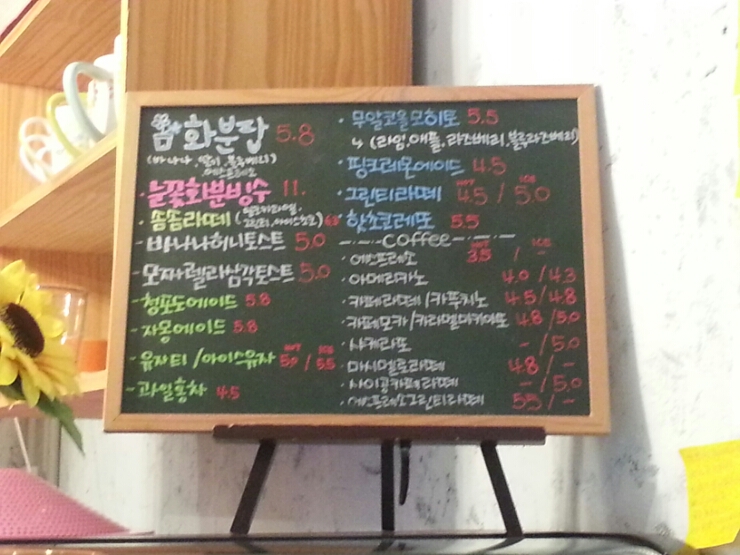 화분팝 5.8
(바나나, 딸기, 블루베리)
에스프레소
·눈꽃화분빙수 11.
·솜솜라떼
그린티, 아이스초코) 6.3
-바나나허니토스트 5.0
-모짜렐라삼각토스트 5.0
-청포도에이드 5.8
-자몽에이드 5.8
HOT ICE
-유자티/아이스유자 5.0 / 5.5
-과일홍차 4.5
·무알코올모히토 5.5
↳ (라임, 애플, 라즈베리, 블루라즈베리)
·핑크레몬에이드 4.5
HOT ICE
·그린티라떼 4.5 / 5.0
·핫초코레또 5.5
-·-·-coffee-·-·-
HOT ICE
·에스프레소 3.5 / -
·아메리카노 4.0 / 4.3
·카페라떼/카푸치노 4.5/4.8
·카페모카/카라멜마키아또 4.8 / 5.0
·샤케라또 - / 5.0
·마시멜로라떼 4.8 / -
·사이공카페라떼 - / 5.0
·에스프레소그린티라떼 5.5 / -